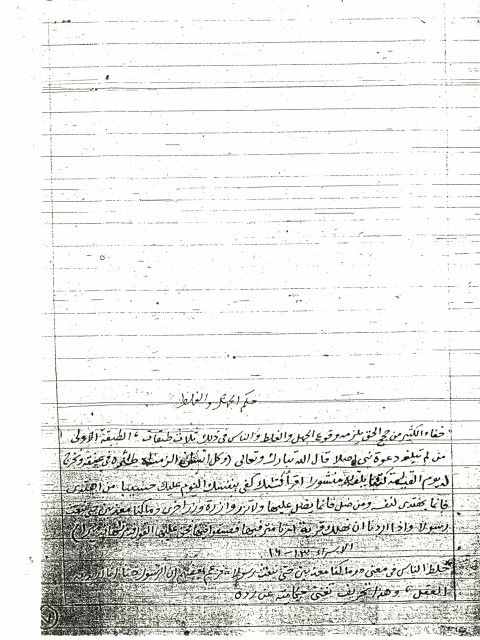 حكم الجهل والغلط
خفاء الكثير من حجج الحق يلزمه وقوع الجهل والغلط والناس في ذلك ثلاث طبقات، الطبقة الأولى
من لم تبلغه دعوة نبي أصلا قال الله تبارك وتعالى (وكل إنسان ألزمناه طائره في عنقه ونخرج
له يوم القيامة كتابا يلقاه منشورا اقرأ كتابك كفى بنفسك اليوم عليك حسيبا من اهتدى
فإنما يهتدي لنفسه ومن ضل فإنما يضل عليها ولا تزر وازرة وزر أخرى وما كنا معذبين حتى نبعث
رسولا وإذا أردنا أن نهلك قرية أمرنا مترفيها ففسقوا فيها فحق عليها القول فدمرناها تدميرا)
الإسراء ١٣-١٦
الناس في معنى وما كنا معذبين حتى نبعث رسولا أن الرسول هنا
العقل، وهذا تحريف عن رده